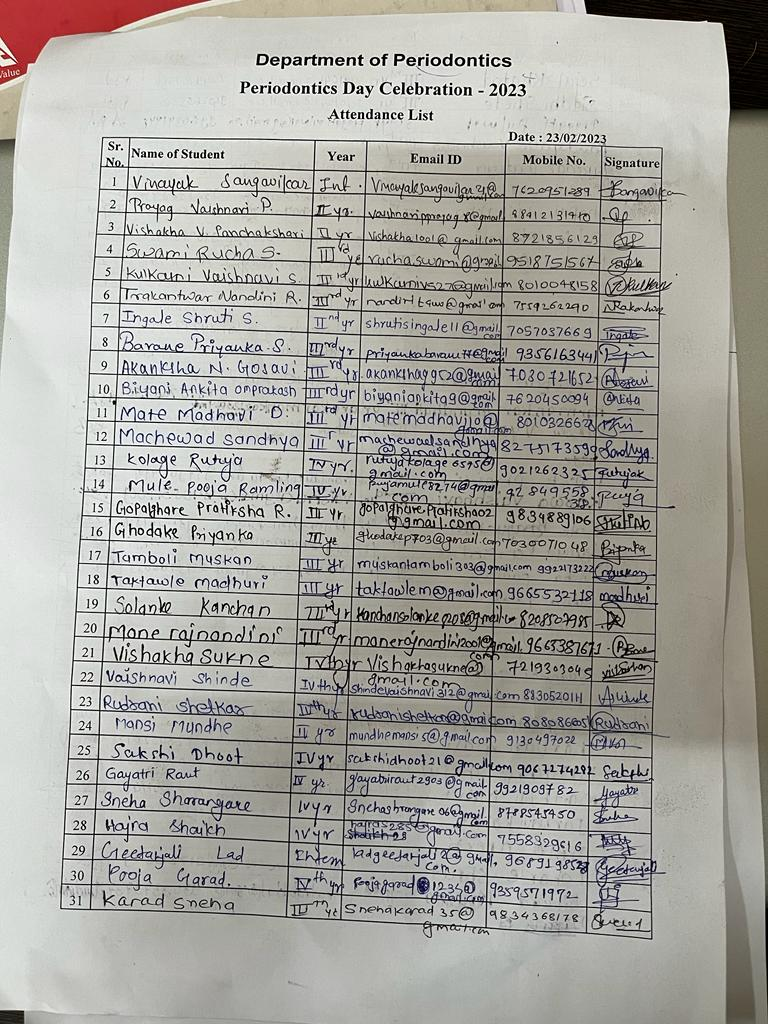 Value
Department of Periodontics
Periodontics Day Celebration - 2023
Attendance List
Date : 23/02/2023
Sr. No. Name of Student Year Email ID Mobile No. Signature
1 Vinayak Sangavilcar Int. 7620951289
2 Prayag Vaishnavi P. II yr.
3 Vishakha V. Panchakshari II yr vishakha1001@gmail.com 8721856129
4 Swami Rucha S. IIIrd yr ruchaswami@gmail 9518751567
5 Kulkarni Vaishnavi S. IIIrd yr 8010048158
6 Trakantwar Nandini R. IIIrd yr 7559262290
7 Ingale Shruti S. IInd yr shrutisingale11@gmail.com 7057037669 Ingale
8 Barane Priyanka S. IIIrd yr 9356163441
9 Akanksha N. Gosavi IIIrd yr. akankshagg52@gmail.com 7030721652
10 Biyani Ankita omprakash IIIrd yr biyaniankita9@gmail.com 7620450094 Ankita
11 Mate Madhavi D. IIIrd yr matemadhavi10@gmail.com 8010326626
12 Machewad Sandhya IIIr yr machewadsandhya@gmail.com 8275173599 Sandhya
13 Kolage Rutuja IV yr. rutujakolage6595@gmail.com 9021262325 Rutujak
14 Mule Pooja Ramling IV yr. pujamule8274@gmail.com Puja
15 Gopalghare Pratiksha R. III yr gopalgharepratiksha02@gmail.com 9834889106
16 Ghodake Priyanka III yr ghodakep703@gmail.com 7030071048 Priyanka
17 Tamboli Muskan III yr muskantamboli303@gmail.com 9922173222 muskan
18 Taktawle madhuri III yr taktawlem@gmail.com 9665532118 madhuri
19 Solanke Kanchan IIIrd yr 8208507985
20 Mane rajnandini IIIrd yr manerajnandini2001@gmail.com 9665387671
21 Vishakha Sukne IVth yr Vishakhasukne@gmail.com 7219303045
22 Vaishnavi Shinde IVth yr shindevaishnavi312@gmail.com
23 Rudrani Shetkar IVth yr rudranishetkar@gmail.com Rudrani
24 Mansi Mundhe IV yr mundhemansi5@gmail.com 9130497022
25 Sakshi Dhoot IV yr sakshidhoot21@gmail.com 9067274292 Sakshi
26 Gayatri Raut IV yr. gayatriraut2903@gmail.com 9921909782 Gayatri
27 Sneha Sharangare IV yr Snehashrangare06@gmail.com 8788545450 Sneha
28 Hajra Shaikh IV yr 7558329616
29 Geetanjali Lad Intern ladgeetanjali2@gmail.com. Geetanjali
30 Pooja Garad. IVth yr poojagarad1234@gmail.com 9359571972
31 Karad Sneha IVth yr Snehakarad35@gmail.com 9834368178